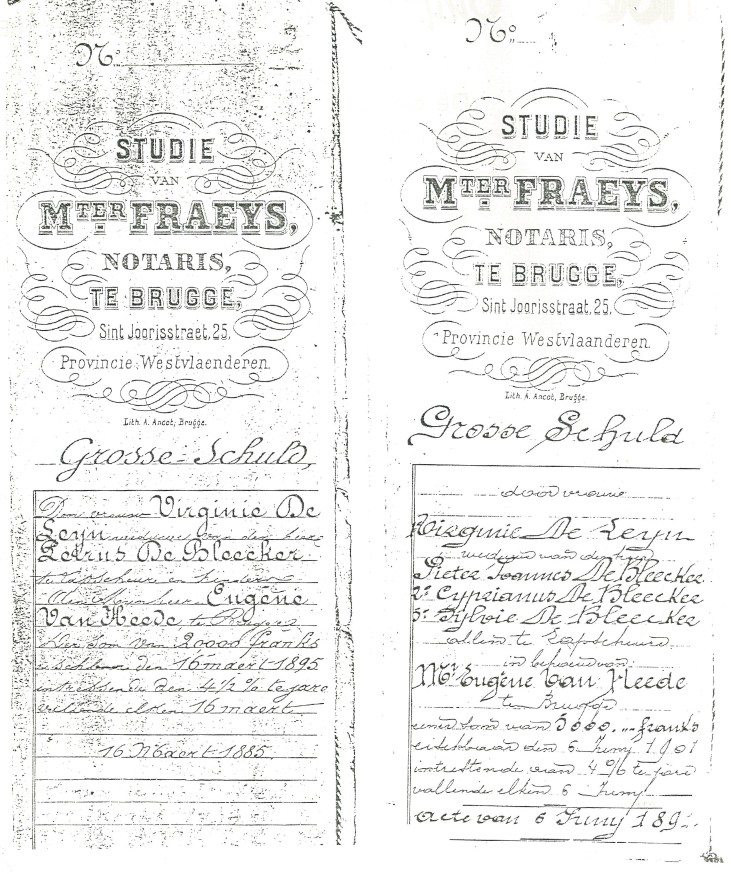 Nº
STUDIE
VAN
MTER FRAEYS,
NOTARIS,
TE BRUGGE,
Sint Joorisstraet, 25.
Provincie Westvlaenderen.
Lith. A. Ancot, Brugge.
Grosse-Schuld,
Door vrouw Virginie De
Leyn weduwe van den heer
Petrus De Bleecker
te Lapscheure en kinders
Aen Mynheer Eugène
Van Heede te Brugge
Der som van 20000 franks
den 16 maert 1895
intressende den 4 1/2 % te jare
vallende elken 16 maert
16 Maert 1885.
Nº
STUDIE
VAN
MTER FRAEYS,
NOTARIS,
TE BRUGGE,
Sint Joorisstraat, 25.
Provincie Westvlaanderen.
Lith. A. Ancot, Brugge.
Grosse Schuld
door vrouw
Virginie De Leyn
weduwe van den heer
Pieter Joannes De Bleecker
2º Cyprianus De Bleecker
3º Sylvie De Bleecker
allen te Lapscheure
in behoeve van
Mr Eugene Van Heede
te Brugge
eener som van 5000.,, franks
eischbaar den 6 Juny 1901
intrestende aan 4 % te jare
vallende elken 6 Juny
acte van 6 Juny 189